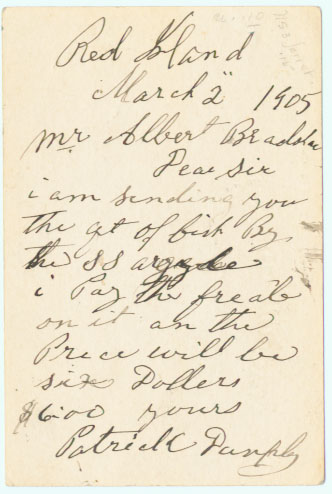 Red Island
March 2" 1905
Mr Albert Bradshaw
Dear Sir
i am sending you
the qt of fish By
the SS argyle
i Pay the freale
on it an the
Price will be
six Dollers
$6.00 yours
Patrick Dunphy